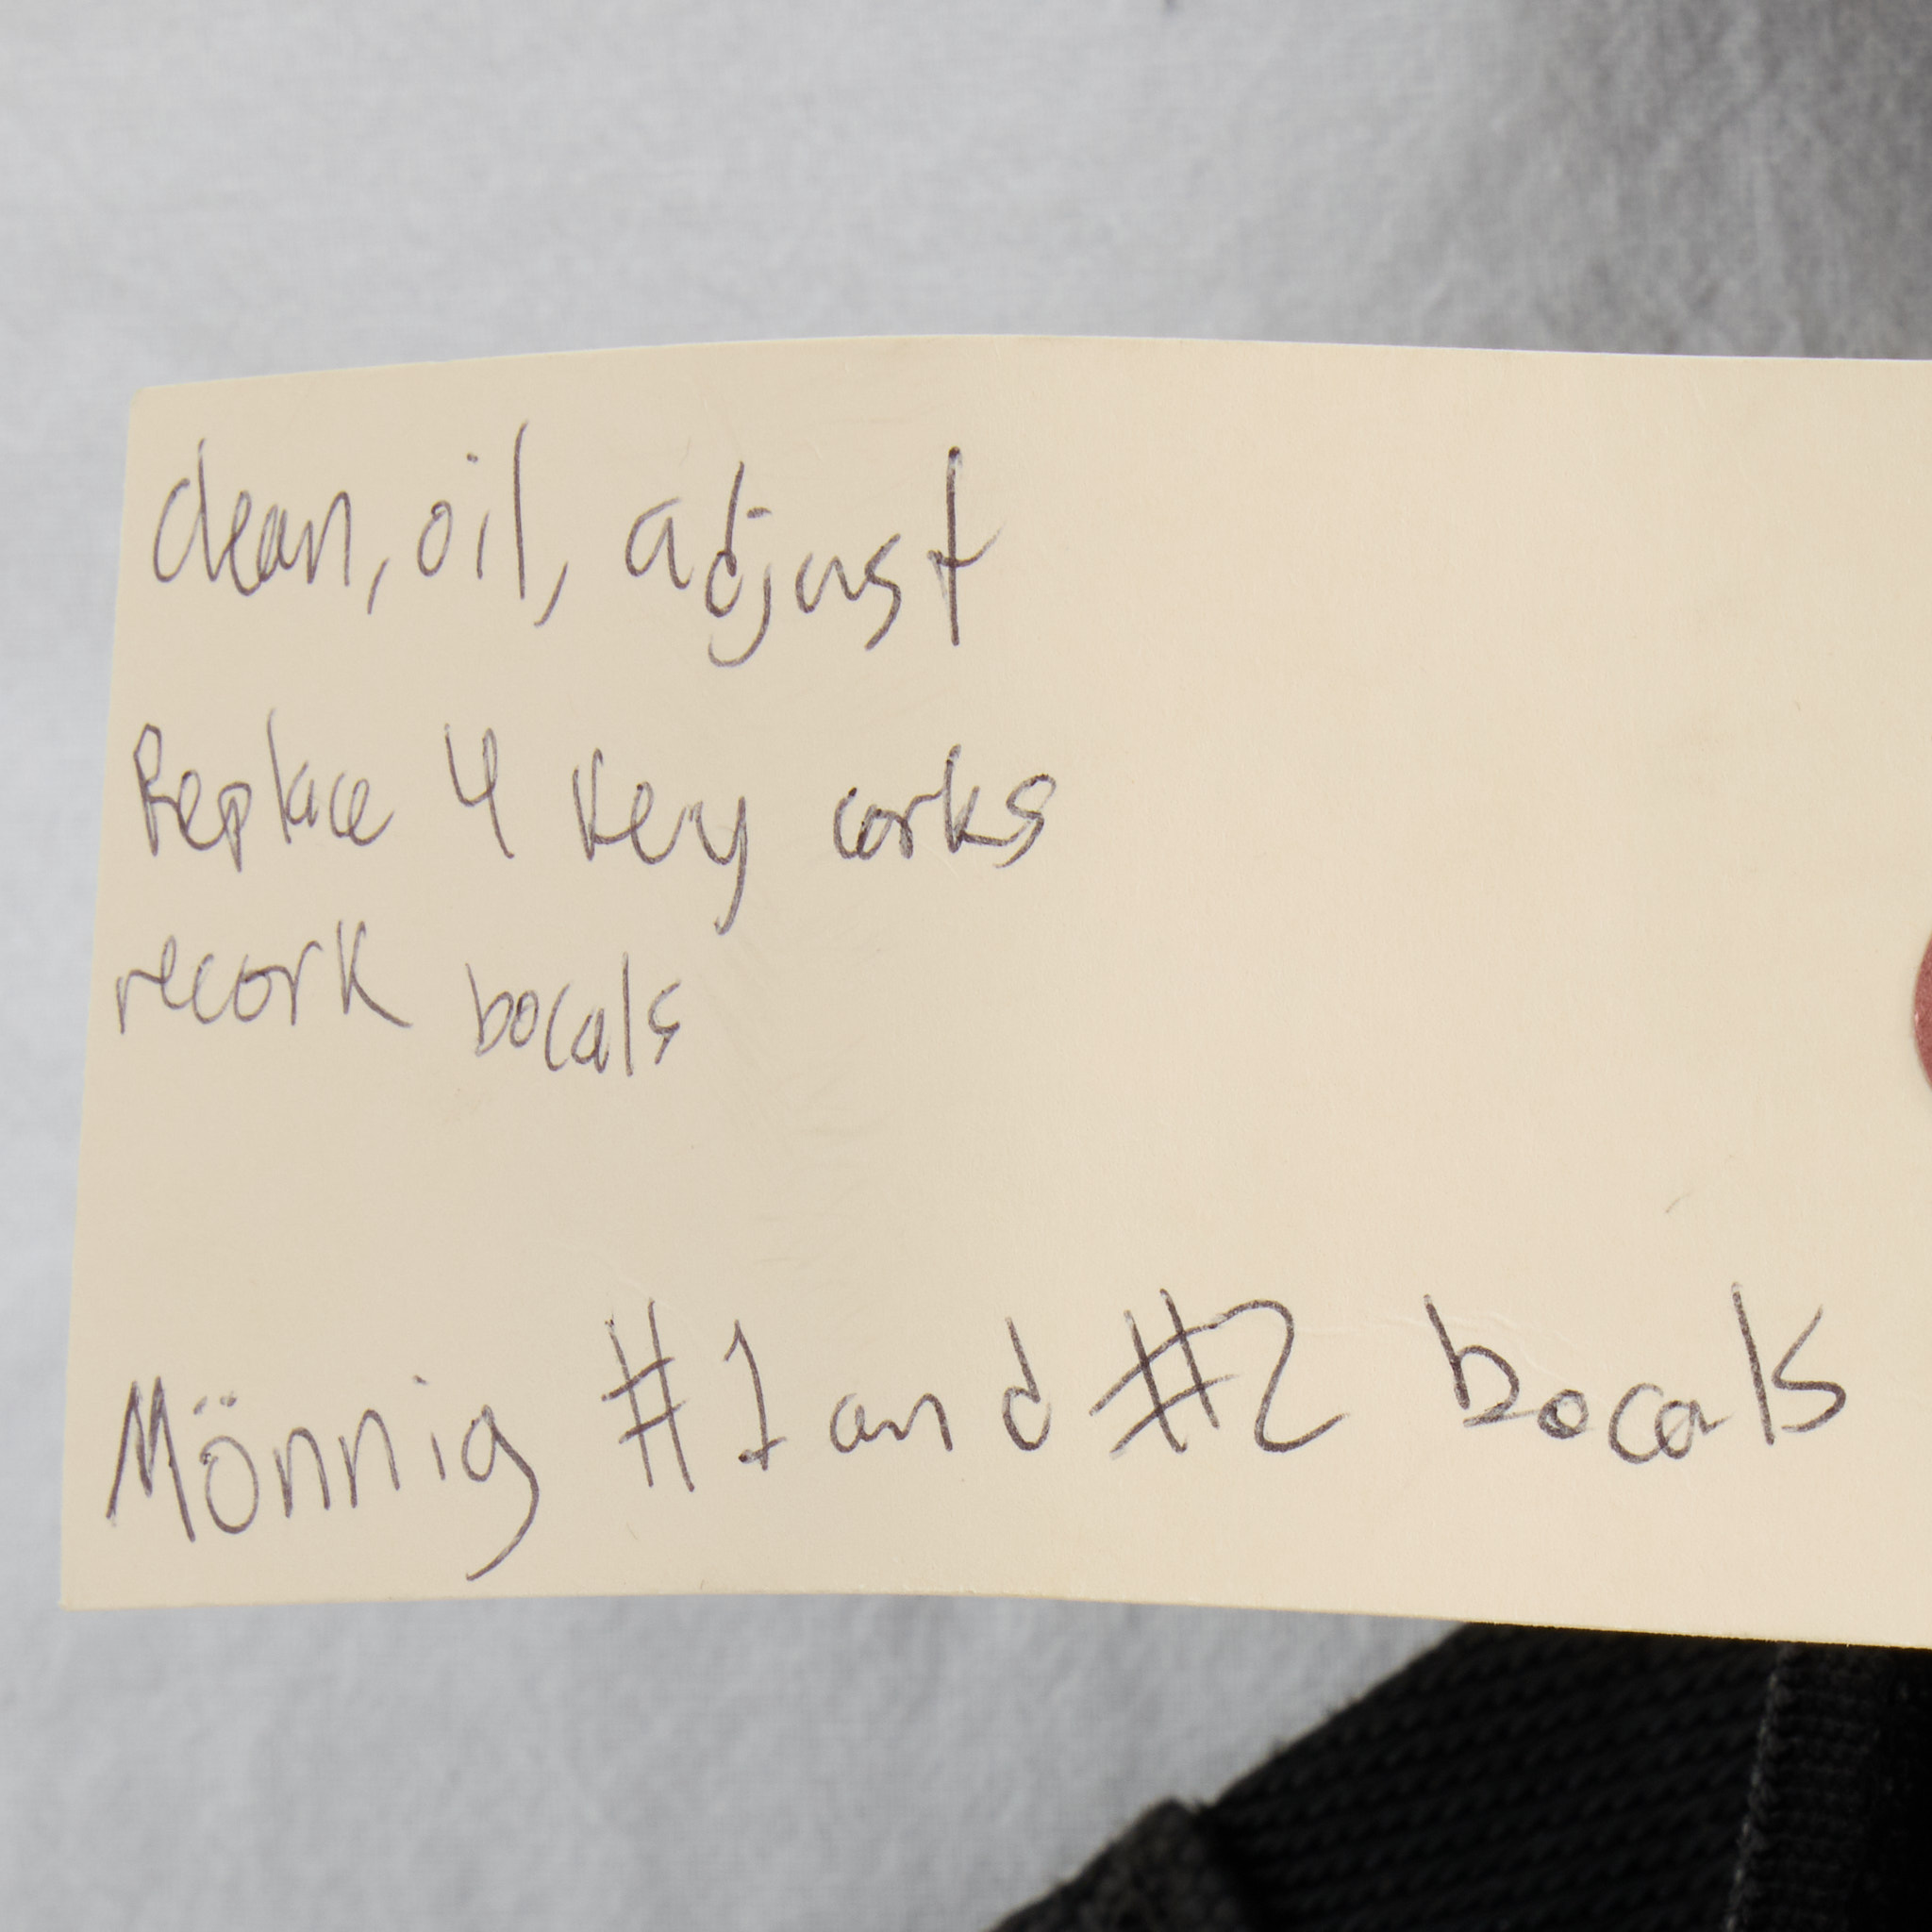 clean, oil, adjust
Replace 4 key corks
recork bocals
Mönnig #1 and #2 bocals